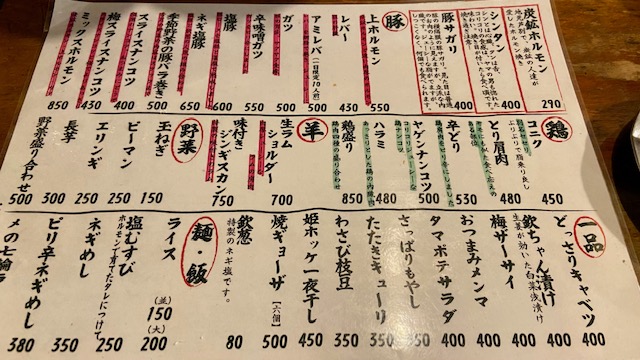 炭鉱ホルモン
愛したホルモン焼き
290
シンタン
400
豚サガリ
400
豚
上ホルモン
550
レバー
430
アミレバ(一日限定10人前)
500
ガツ
500
辛味噌ガツ
550
塩豚
500
ネギ塩豚
600
季節野菜の豚バラ巻き
スライスナンコツ
400
梅スライスナンコツ
430
ミックスホルモン
850
鶏
コニク
ぷりぷりで脂乗り良し
450
とり肩肉
480
辛どり
530
ヤゲンナンコツ
500
ハラミ
480
鶏盛り
鶏肉四種の盛り合わせ
850
羊
生ラム
ショルダー
700
味付き
ジンギスカン
750
野菜
玉ねぎ
150
ピーマン
250
エリンギ
250
長芋
300
野菜盛り合わせ
500
一品
どっさりキャベツ
400
欽ちゃん漬け
生姜が効いた白菜浅漬け
400
梅ザーサイ
400
おつまみメンマ
400
タマポテサラダ
400
さっぱりもやし
350
たたきキューリ
350
わさび枝豆
350
姫ホッケ一夜干し
450
焼ギョーザ【六個】
500
欽葱
特製のネギ塩です。
80
麺・飯
ライス
(並)
150
(大)
200
塩むすび
ホルモンで育ったタレにつけて
100
ネギめし
250
ピリ辛ネギめし
350
380